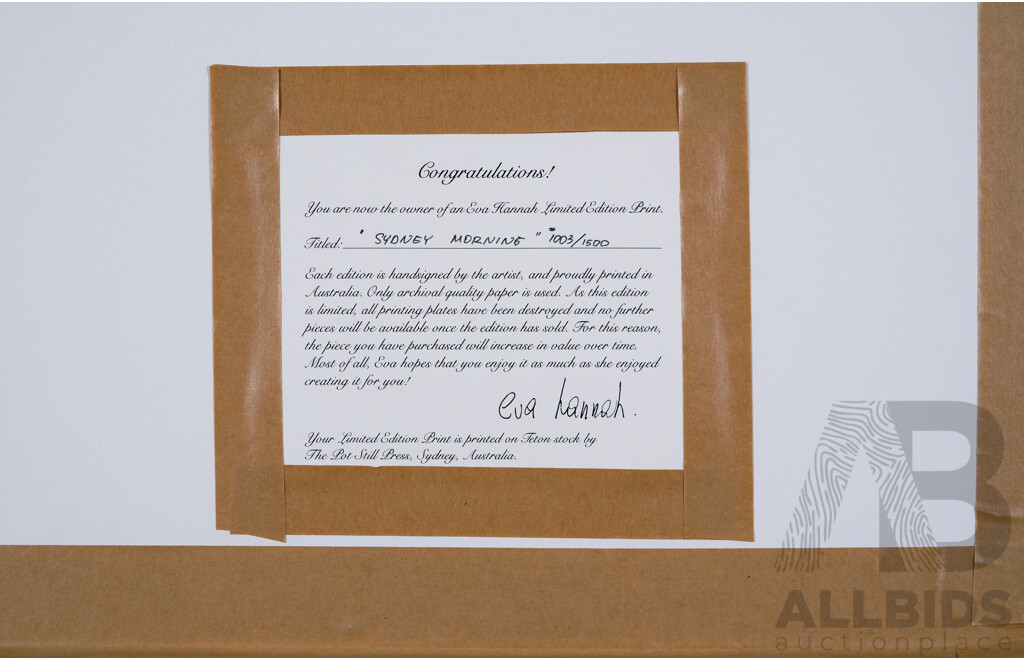 Congratulations!
You are now the owner of an Eva Hannah Limited Edition Print.
Titled: "SYDNEY MORNING" #1003/1500
Each edition is handsigned by the artist, and proudly printed in
Australia. Only archival quality paper is used. As this edition
is limited, all printing plates have been destroyed and no further
pieces will be available once the edition has sold. For this reason,
the piece you have purchased will increase in value over time.
Most of all, Eva hopes that you enjoy it as much as she enjoyed
creating it for you!
eva hannah.
Your Limited Edition Print is printed on Teton stock by
The Pot Still Press, Sydney, Australia.
AB
ALLBIDS
auctionplace